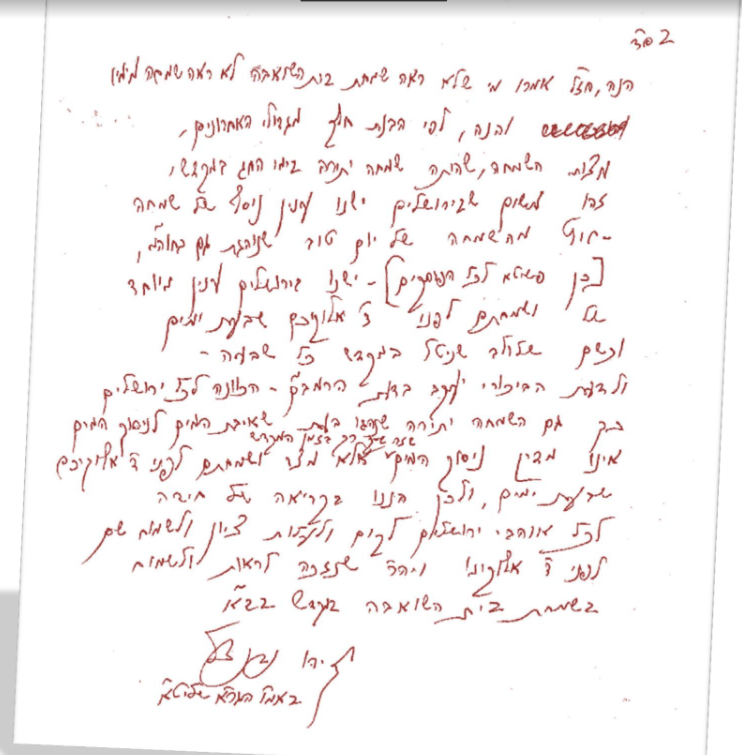 בס״ד
הנה, חז״ל אמרו מי שלא ראה שמחת בית השואבה לא ראה שמחה מימיו
והנה, לפי הבנת חלק מגדולי האחרונים,
מצות השמחה, שהיתה שמחה יתירה בימי החג במקדש,
זהו משום שבירושלים ישנו ענין נוסף של שמחה
- חוץ מהשמחה של יום טוב שנוהגת גם בחוה״מ,
[כן פשוט לכל הפוסקים] - ישנו בירושלים ענין מיוחד
של ושמחתם לפני ד׳ אלוקיכם שבעת ימים
וכשם שלולב שניטל במקדש כל שבעה -
ולדעת הביכורי יעקב בדעת הרמב״ם - הכוונה לכל ירושלים
כך גם השמחה יתירה שנהגו בעת שאיבת המים לניסוך המים
שזה שייך רק בזמן המקדש
אינו מדין ניסוך המים אלא מצד ושמחתם לפני ד׳ אלוקיכם
שבעת ימים, ולכן הננו בקריאה של חיבה
לכל אוהבי ירושלים לקום ולעלות ציון ולשמוח שם
לפני ד׳ אלוקינו ויה״ר שנזכה לראות ולשמוח
בשמחת בית השואבה במקדש בב״א
באמו״ר הגר״א שליט״א